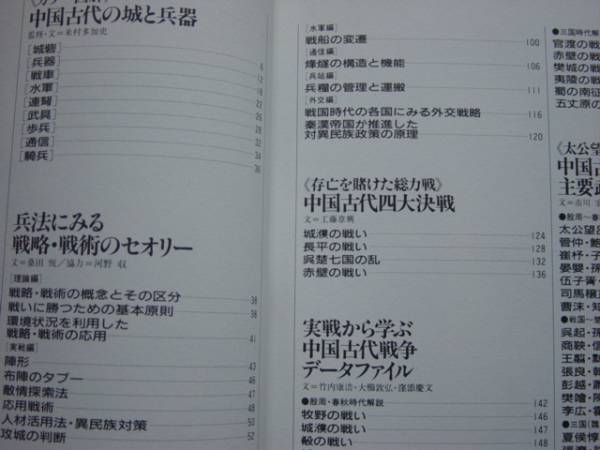 中国古代の城と兵器
監修・文＝米村多加史
［城砦］ 6
［兵器］ 12
［戦車］ 16
［水軍］ 22
［連弩］ 26
［武具］ 28
［歩兵］ 32
［通信］ 34
［騎兵］ 36
兵法にみる
戦略・戦術のセオリー
文＝桑田 悦／協力＝河野 収
［理論編］
戦略・戦術の概念とその区分 38
戦いに勝つための基本原則 38
環境状況を利用した
戦略・戦術の応用 41
［実戦編］
陣形 43
布陣のタブー 46
敵情探索法 47
応用戦術 48
人材活用法・異民族対策 50
攻城の判断 52
［水軍編］
戦船の変遷 100
［通信編］
烽燧の構造と機能 106
［兵站編］
兵糧の管理と運搬 111
［外交編］
戦国時代の各国にみる外交戦略 116
秦漢帝国が推進した
対異民族政策の原理 120
《存亡を賭けた総力戦》
中国古代四大決戦
文＝工藤章興
城濮の戦い 124
長平の戦い 128
呉楚七国の乱 132
赤壁の戦い 136
実戦から学ぶ
中国古代戦争
データファイル
文＝竹内康浩・大櫛敦弘・窪添慶文
●殷周・春秋時代解説 142
牧野の戦い 146
城濮の戦い 147
殽の戦い 148
●三国時代解
官渡の戦
赤壁の戦
樊城の戦
夷陵の戦
蜀の南征
五丈原の
《太公望
中国古
主要武
文＝市川
●殷周～春
太公望呂
管仲・鮑
崔杼・子
晏嬰・孫
伍子胥・
司馬穰苴
曹沫・知
●戦国～楚
呉起・孫
商鞅・信
王翦・
張良・韓
彭越・蕭
樊噲・
李広・霍
●三国［魏
夏侯惇